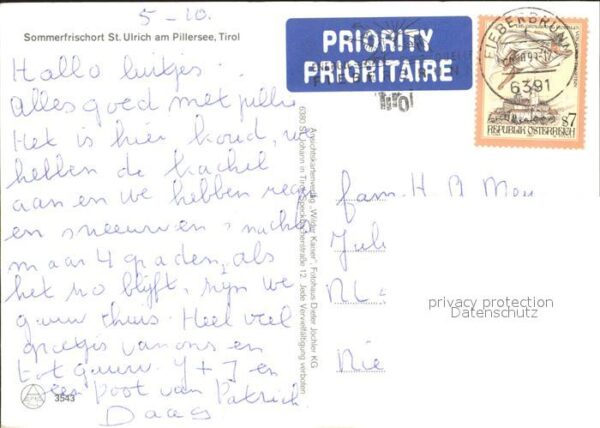 5-10.
Sommerfrischort St. Ulrich am Pillersee, Tirol
PRIORITY
PRIORITAIRE
FIEBERBRUNN
6391
Tirol
s7
REPUBLIK ÖSTERREICH
Hallo luitjes.
Alles goed met jullie
Het is hier koud, we
hebben de kachel
aan en we hebben regen
en sneeuw en s'nachts
maar 4 graden, als
het zo blijft, zijn we
gauw thuis. Heel veel
groetjes van ons en
tot gauw. Y + J en
een poot van Patrick
Daag
Ansichtkartenverlag „Wilder Kaiser", Fotohaus Dieter Jöchler KG
6380 St. Johann in Tirol, Speckbacherstraße 12 Jede Vervielfältigung verboten
fam. H. A Mou
Juli
NL
Nie
privacy protection
Datenschutz
3543